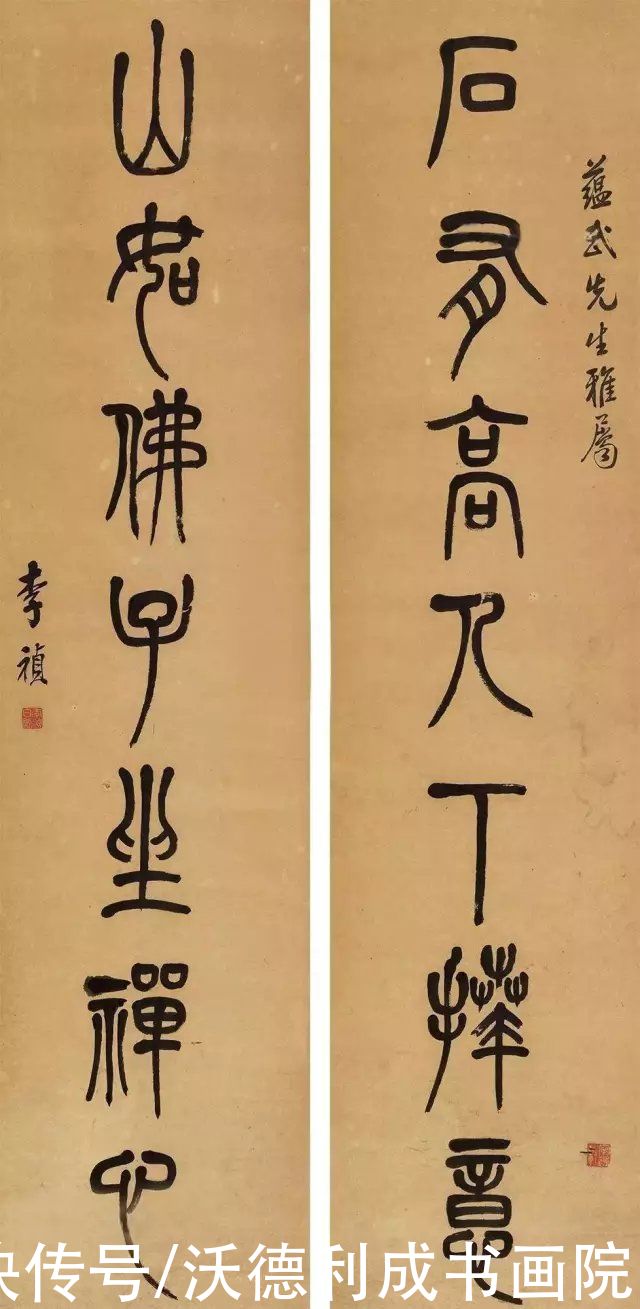 蘊武先生雅屬
石有高人下拜意
山如佛子坐禪心
李禎
快传号/沃德利成书画院